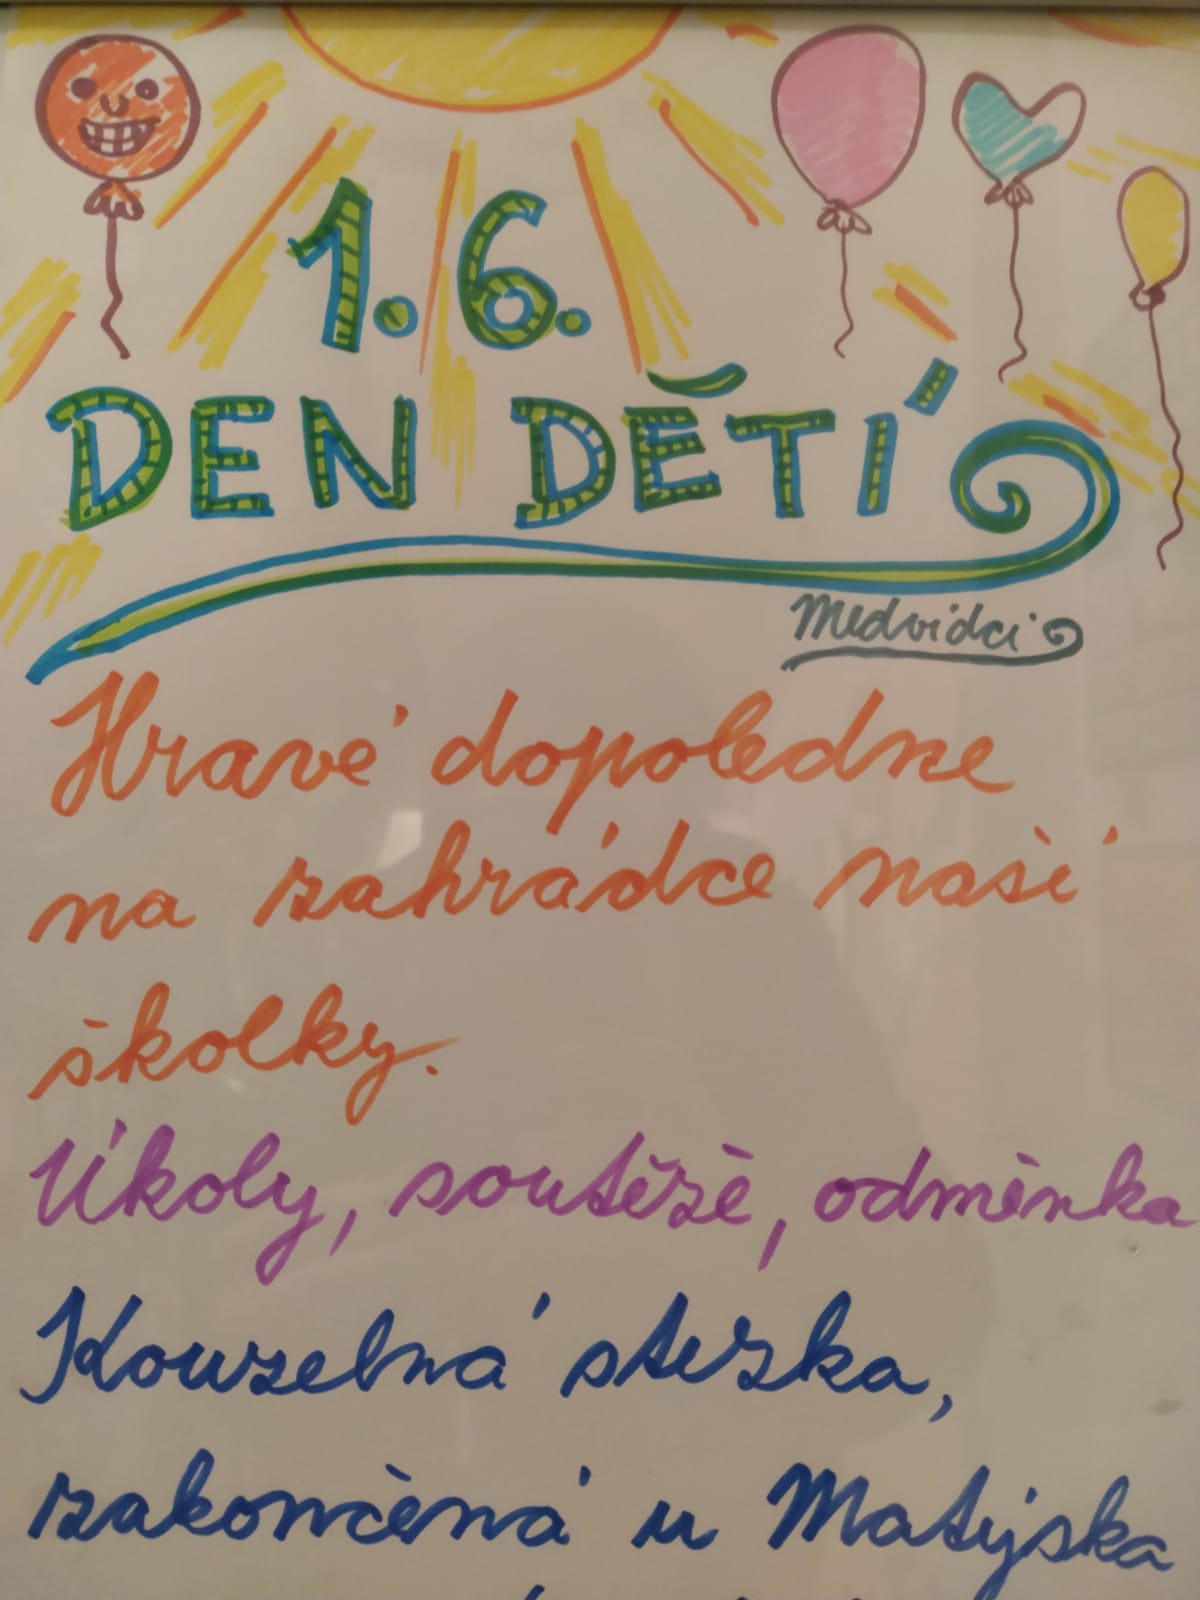 1.6.
DEN DĚTÍ
Medvídci
Hravé dopoledne
na zahrádce naší
školky.
Úkoly, soutěže, odměnka
Kouzelná stezka,
zakončená u Matýska